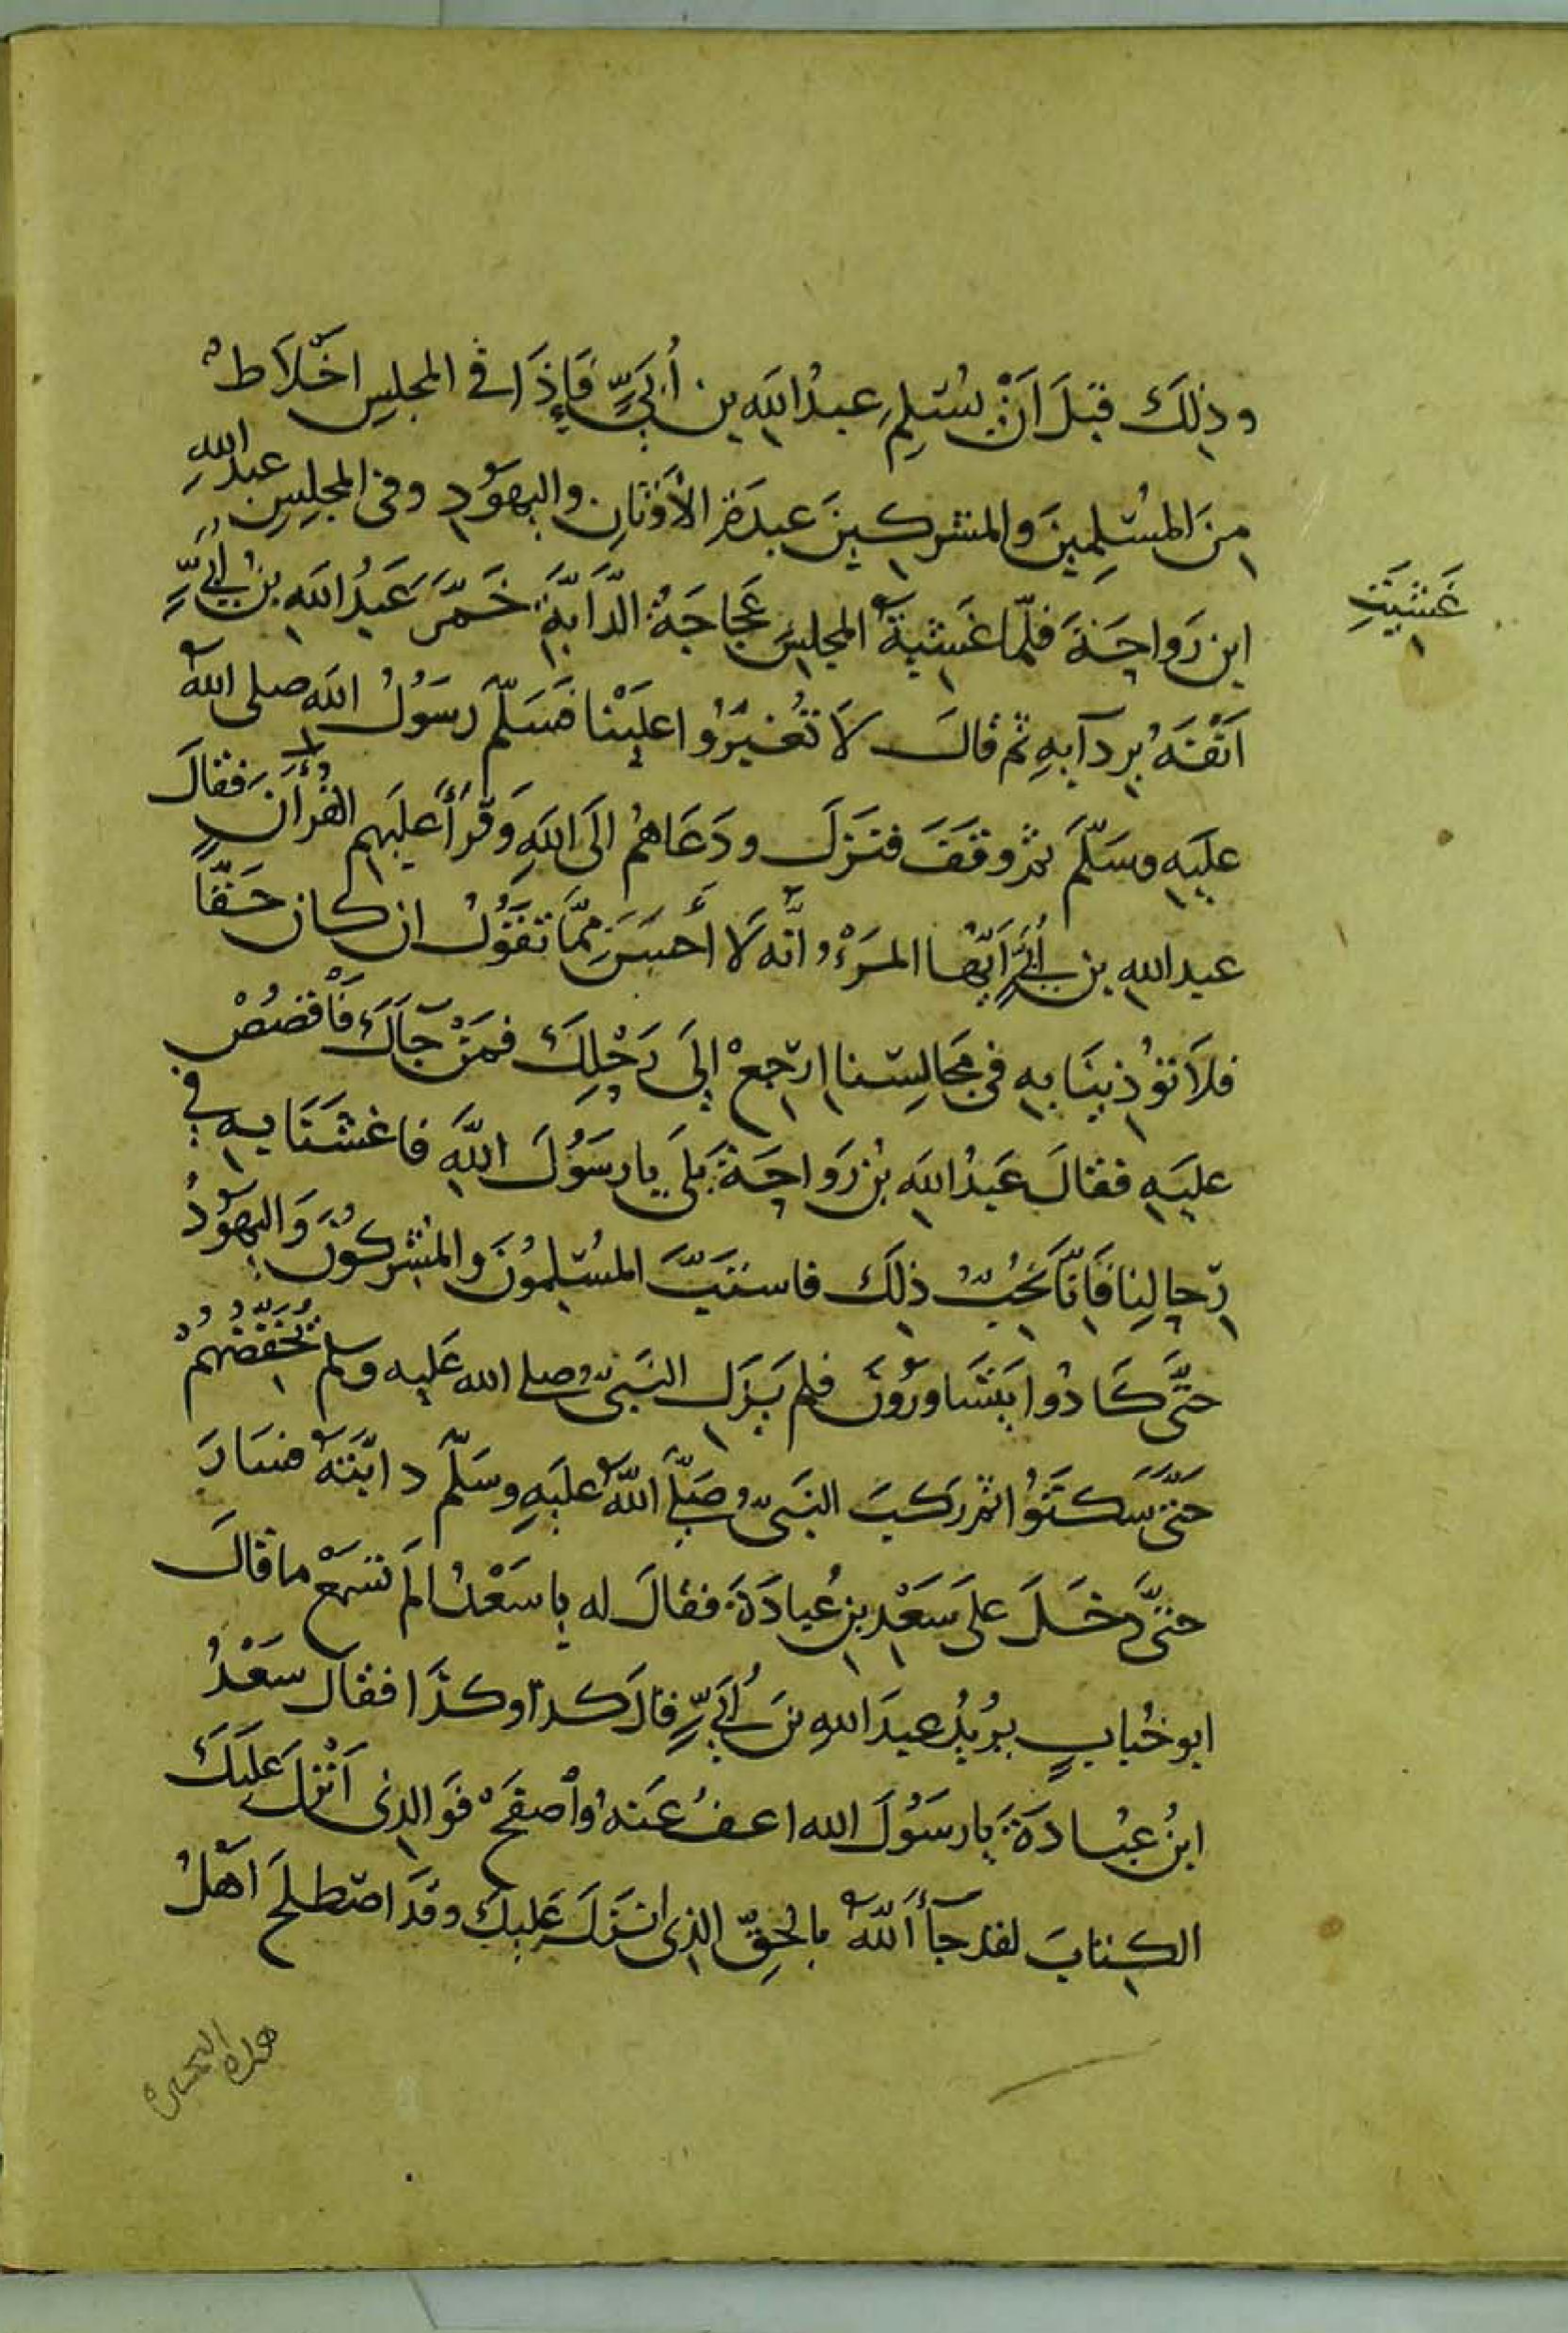 وذلك قبل ان يسلم عبد الله بن أبيّ فإذا في المجلس اخلاط
من المسلمين والمشركين عبدة الاوثان واليهود وفي المجلس عبد الله
ابن رواحة فلمّا غشية المجلس عجاجة الدّابّة خمّر عبد الله بن أبيّ
غشيت
انفه بردآيه ثم قال لا تغيّروا علينا فسلّم رسول الله صلى الله
عليه وسلّم ثم وقف فنزل ودعاهم الى الله وقرأ عليهم القرأن فقال
عبد الله بن أبيّ أيّها المرء انّه لا أحسن ممّا تقول ان كان حقّا
فلا تؤذينا به في مجالسنا ارجع إلى رحلك فمن جآك فاقصص
عليه فقال عبد الله بن رواحة بلى يا رسول الله فاغشنا به في
رحالنا فانّا نحبّ ذلك فاستبّ المسلمون والمشركون واليهود
حتّى كادوا يتشاورون فلم يزل النبيّ صلى الله عليه وسلم يخفّضهم
حتّى سكتوا ثم ركب النبيّ صلّى الله عليه وسلّم دابّته فسار
حتّى دخل على سعد بن عبادة فقال له يا سعد الم تسمع ما قال
ابو حباب يريد عبد الله بن أبيّ قال كذا وكذا فقال سعد
ابن عبادة يا رسول الله اعف عنه واصفح فوالذي انزل عليك
الكتاب لقد جآء الله بالحقّ الذي انزل عليك وقد اصطلح اهل
هذه